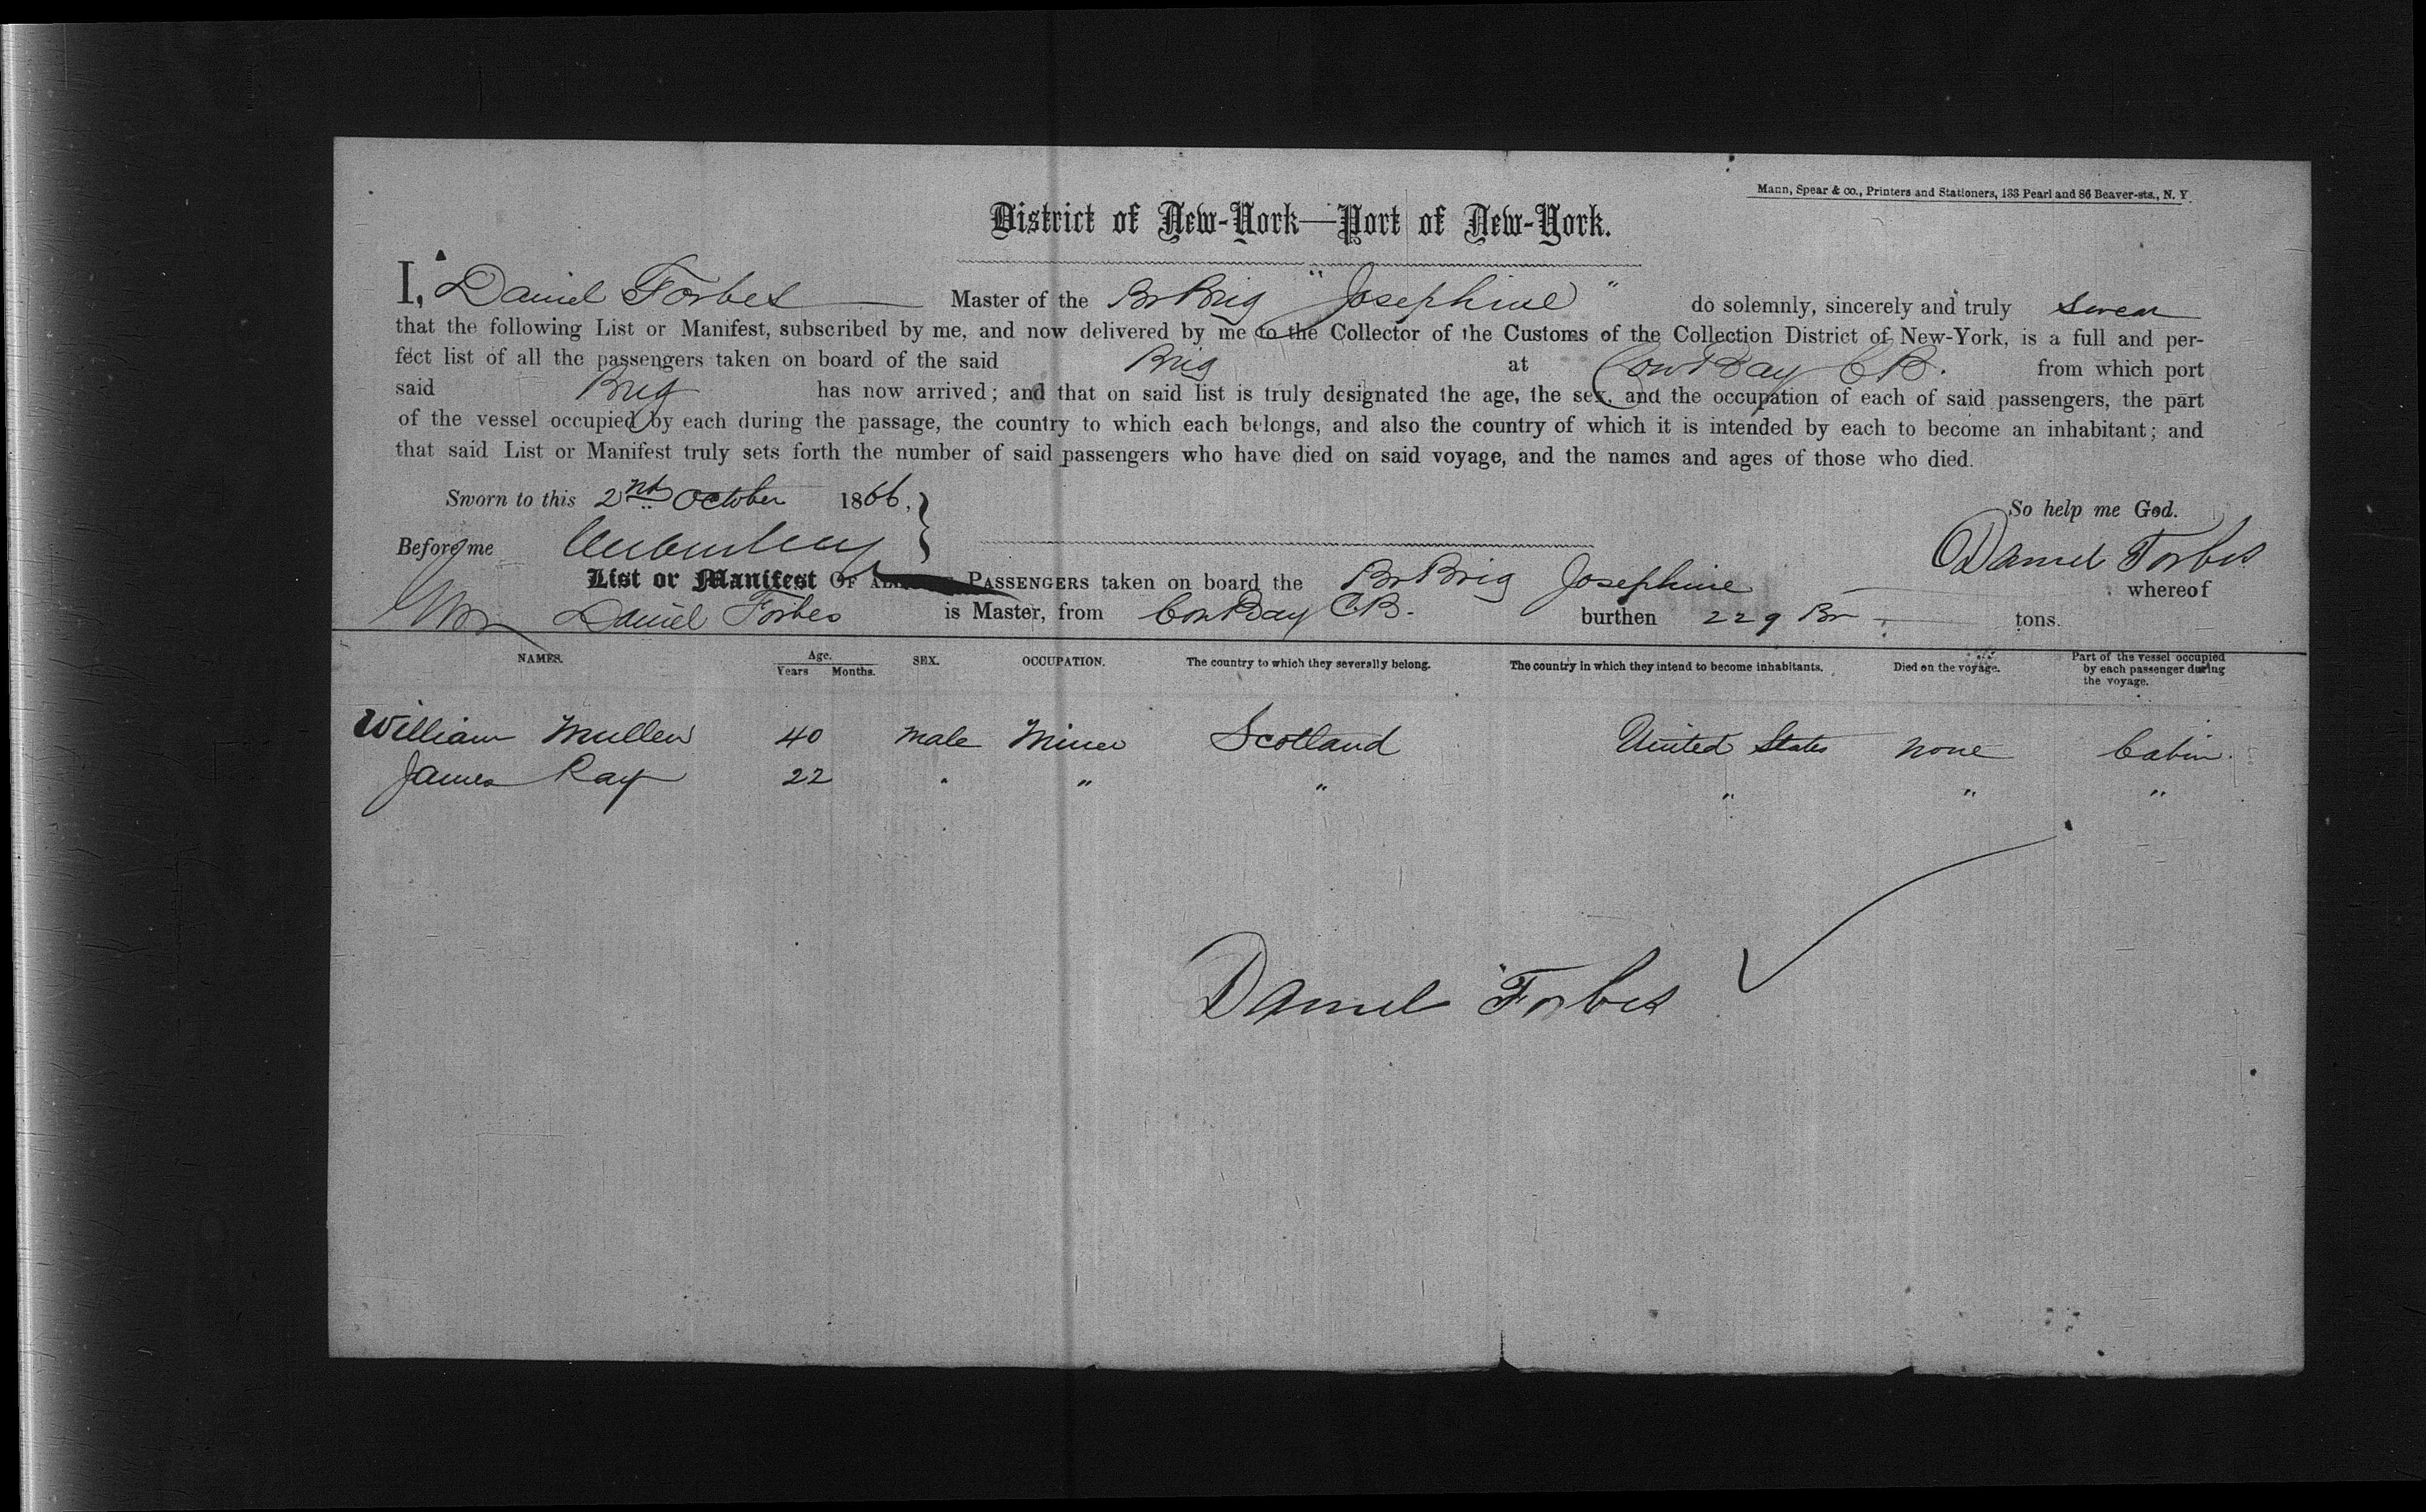 Mann, Spear & co., Printers and Stationers, 133 Pearl and 86 Beaver-sts., N. Y.
District of New-York—Port of New-York.
I, Daniel Forbes Master of the Br Brig "Josephine" do solemnly, sincerely and truly swear
that the following List or Manifest, subscribed by me, and now delivered by me to the Collector of the Customs of the Collection District of New-York, is a full and per-
fect list of all the passengers taken on board of the said Brig at Cow Bay C.B. from which port
said Brig has now arrived; and that on said list is truly designated the age, the sex, and the occupation of each of said passengers, the part
of the vessel occupied by each during the passage, the country to which each belongs, and also the country of which it is intended by each to become an inhabitant; and
that said List or Manifest truly sets forth the number of said passengers who have died on said voyage, and the names and ages of those who died.
Sworn to this 2nd October 1866, So help me God.
Before me Daniel Forbes
List or Manifest OF ALL PASSENGERS taken on board the Br Brig Josephine whereof
Daniel Forbes is Master, from Cow Bay C.B. burthen 229 Br tons.
NAMES. Age. Years Months. SEX. OCCUPATION. The country to which they severally belong. The country in which they intend to become inhabitants. Died on the voyage. Part of the vessel occupied by each passenger during the voyage.
William Mullen 40 male Miner Scotland United States none Cabin.
James Ray 22 " " " " " "
Daniel Forbes